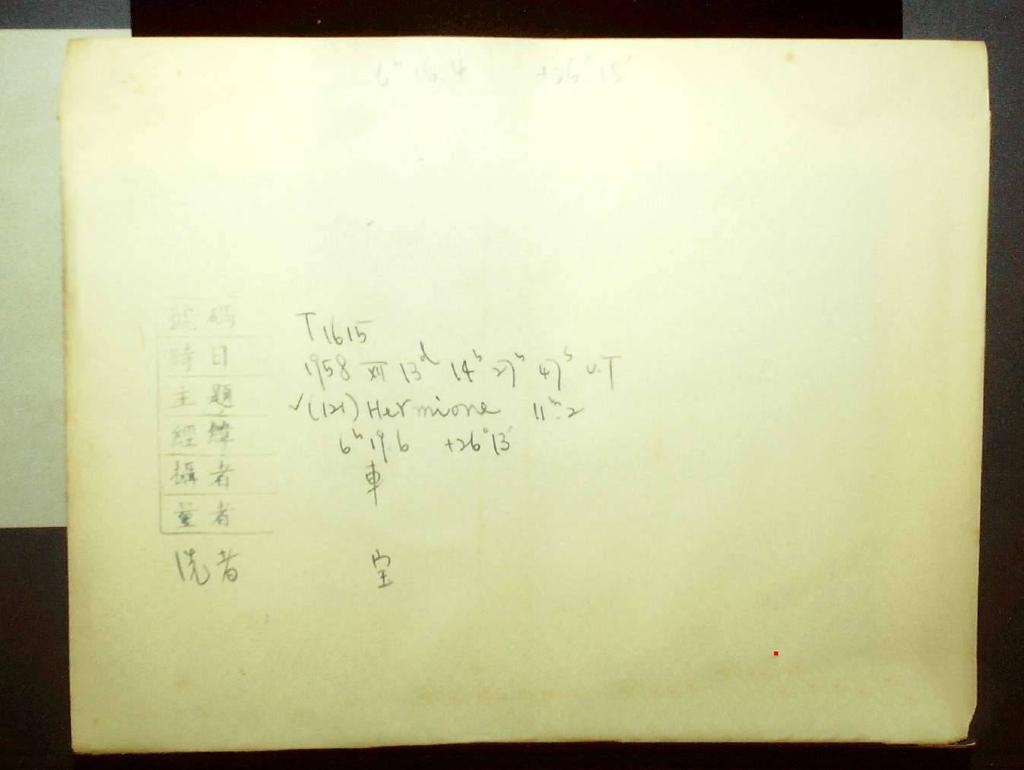 6ʰ 16.4 +26° 15′
號碼 T1615
時日 1958 XII 13ᵈ 14ʰ 27ᵐ 47ˢ U.T
主題 ✓(121) Hermione 11ᵐ.2
經緯 6ʰ 19.6 +26° 13′
攝者 車
量者
洗者 宝